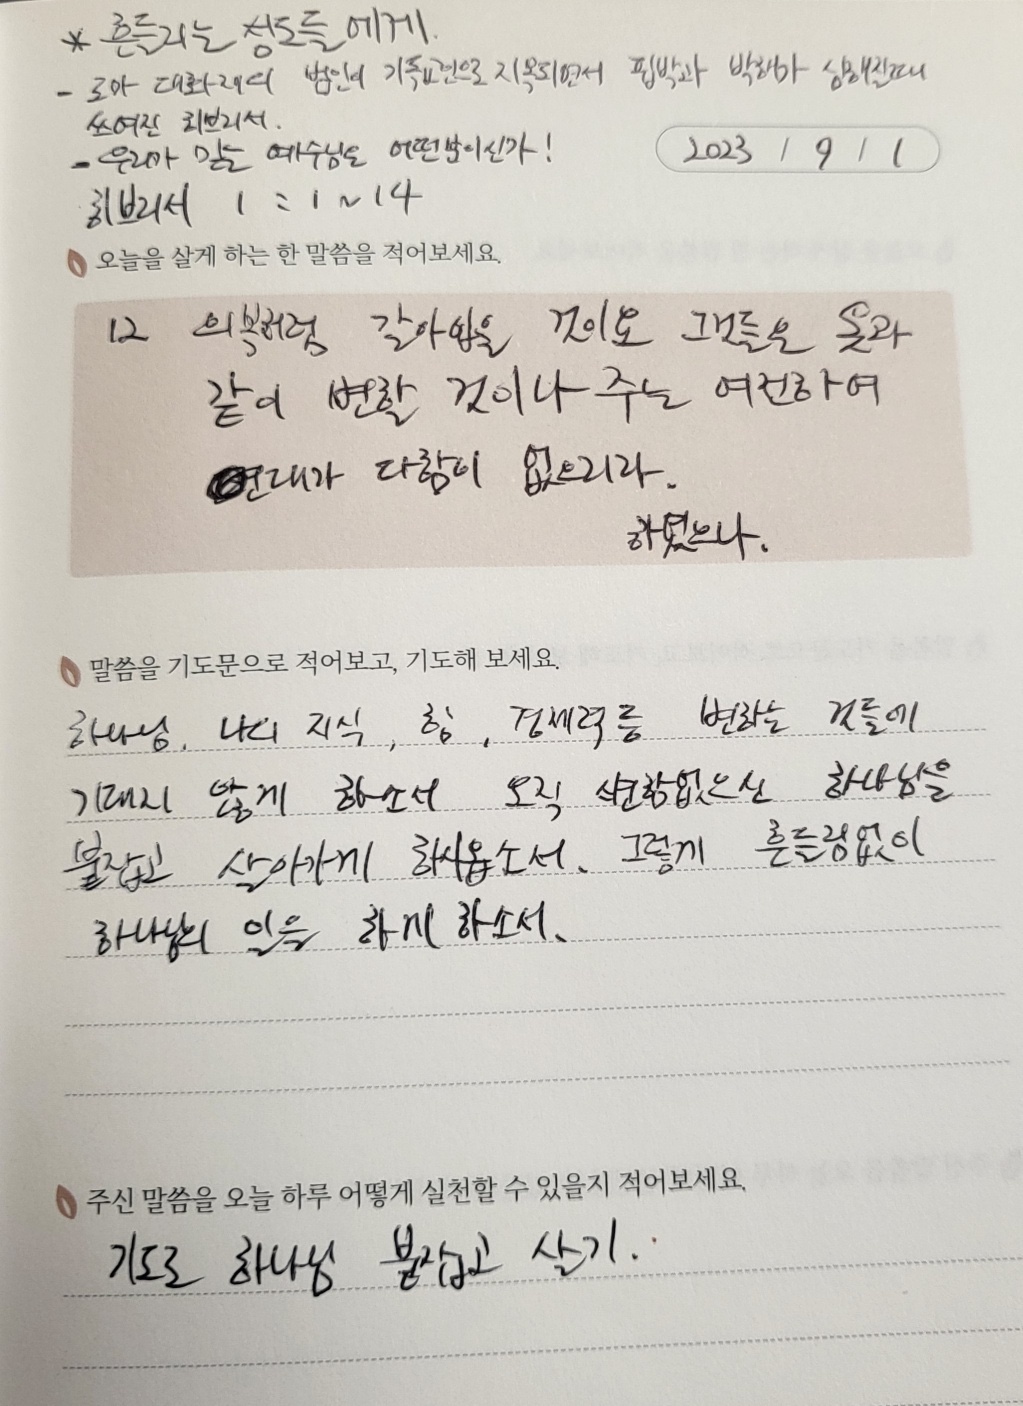 * 흔들리는 성도들에게.
- 로마 대화재의 범인이 기독교인으로 지목되면서 핍박과 박해가 심해진때
쓰여진 히브리서.
- 우리가 믿는 예수님은 어떤분이신가!
2023 / 9 / 1
히브리서 1 : 1 ~ 14
오늘을 살게 하는 한 말씀을 적어보세요.
12 의복처럼 갈아입을 것이요 그것들은 옷과
같이 변할 것이나 주는 여전하여
연대가 다함이 없으리라.
하였으나.
말씀을 기도문으로 적어보고, 기도해 보세요.
하나님, 나의 지식, 힘, 경제력등 변하는 것들에
기대지 않게 하소서 오직 변함없으신 하나님을
붙잡고 살아가게 하시옵소서. 그렇게 흔들림없이
하나님의 일을 하게 하소서.
주신 말씀을 오늘 하루 어떻게 실천할 수 있을지 적어보세요.
기도로 하나님 붙잡고 살기.